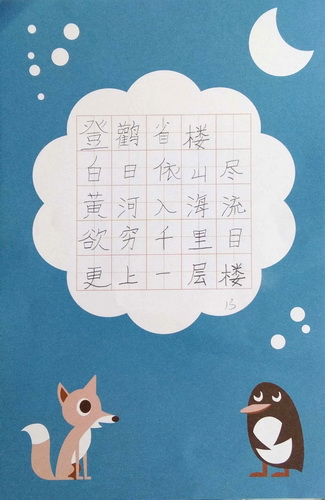 登鹳省楼
白日依山尽
黄河入海流
欲穷千里目
更上一层楼
13